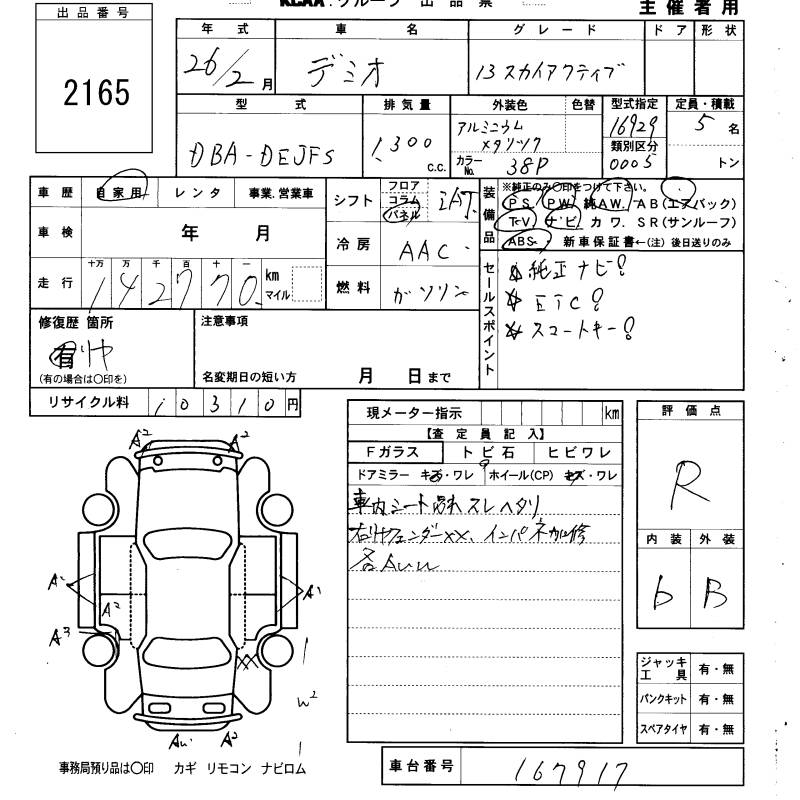 KCAA.グループ 出品票 主催者用
出品番号
2165
年式 車名 グレード ドア 形状
26/2月 デミオ 13スカイアクティブ
型式 排気量 外装色 色替 型式指定 定員・積載
DBA-DEJFS 1300 c.c. アルミニウムメタリック 16929 5名
類別区分
カラーNo. 38P 0005 トン
車歴 自家用 レンタ 事業.営業車
シフト フロア コラム パネル
装備品 ※純正のみ○印をつけて下さい。
PS PW 純AW. AB(エアバック)
TV ナビ カワ. SR(サンルーフ)
ABS 新車保証書←(注)後日送りのみ
車検 年 月
冷房 AAC
走行 十万 万 千 百 十 一
142770 km マイル
燃料 ガソリン
セールスポイント
純正ナビ!
ETC!
スマートキー!
修復歴 箇所
有
(有の場合は○印を)
注意事項
名変期日の短い方 月 日まで
リサイクル料 10310円
現メーター指示 km
【査定員記入】
Fガラス トビ石 ヒビワレ
ドアミラー キズ・ワレ ホイール(CP) キズ・ワレ
車内シート スレ ヘタリ
フェンダーXX、インパネ
各
評価点
R
内装 外装
b B
A2 A2
A1 A2 A1
A3
XX
W2
AU A2
ジャッキ工具 有・無
パンクキット 有・無
スペアタイヤ 有・無
事務局預り品は○印 カギ リモコン ナビロム
車台番号 167917